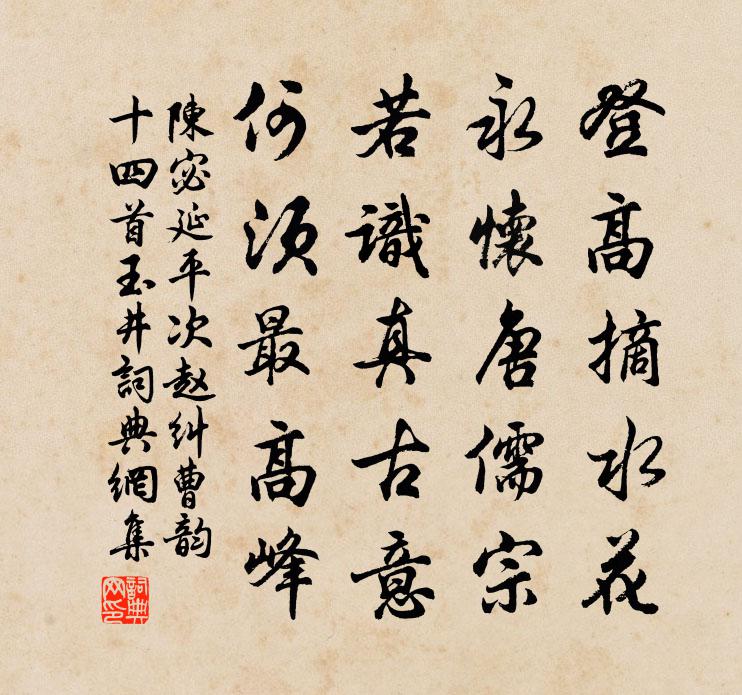 登高摘水花
永懷唐儒宗
若識真古意
何須最高峰
陳宓延平次趙糾曹韵
十四首玉井詞典網集
詞典
网印